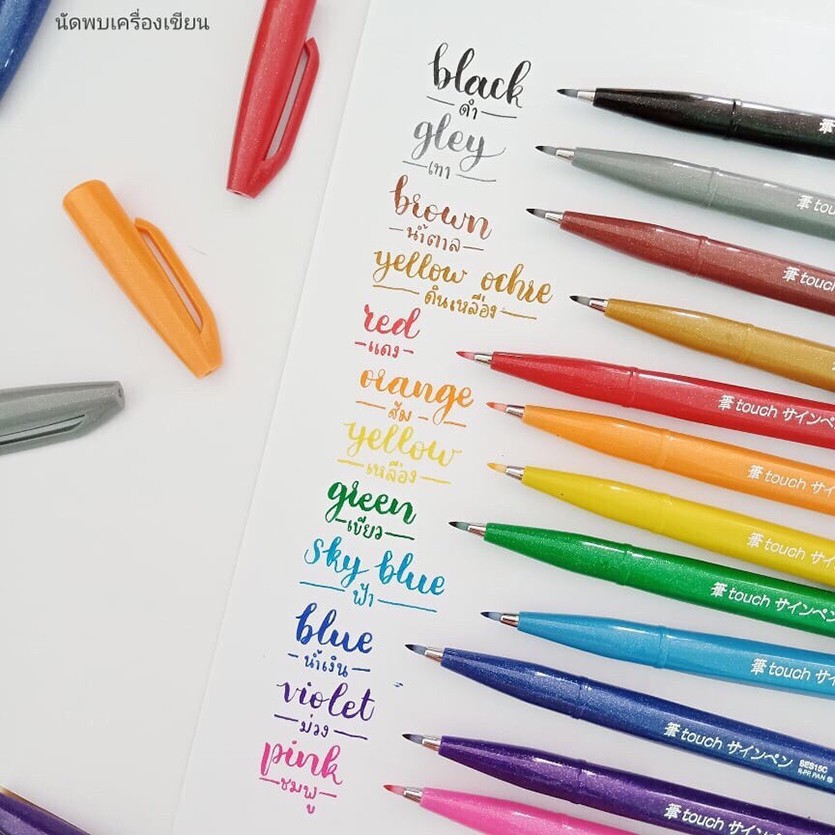 นัดพบเครื่องเขียน
black
ดำ
gley
เทา
brown
น้ำตาล
yellow ochre
ดินเหลือง
red
แดง
orange
ส้ม
yellow
เหลือง
green
เขียว
sky blue
ฟ้า
blue
น้ำเงิน
violet
ม่วง
pink
ชมพู
筆
筆tou
筆touch
筆touch サインペ
筆touch サイ
筆touch サイン
筆touch サインペン
筆touch サイ
筆touch サインペン SES15C
筆touch サインペ
筆touch